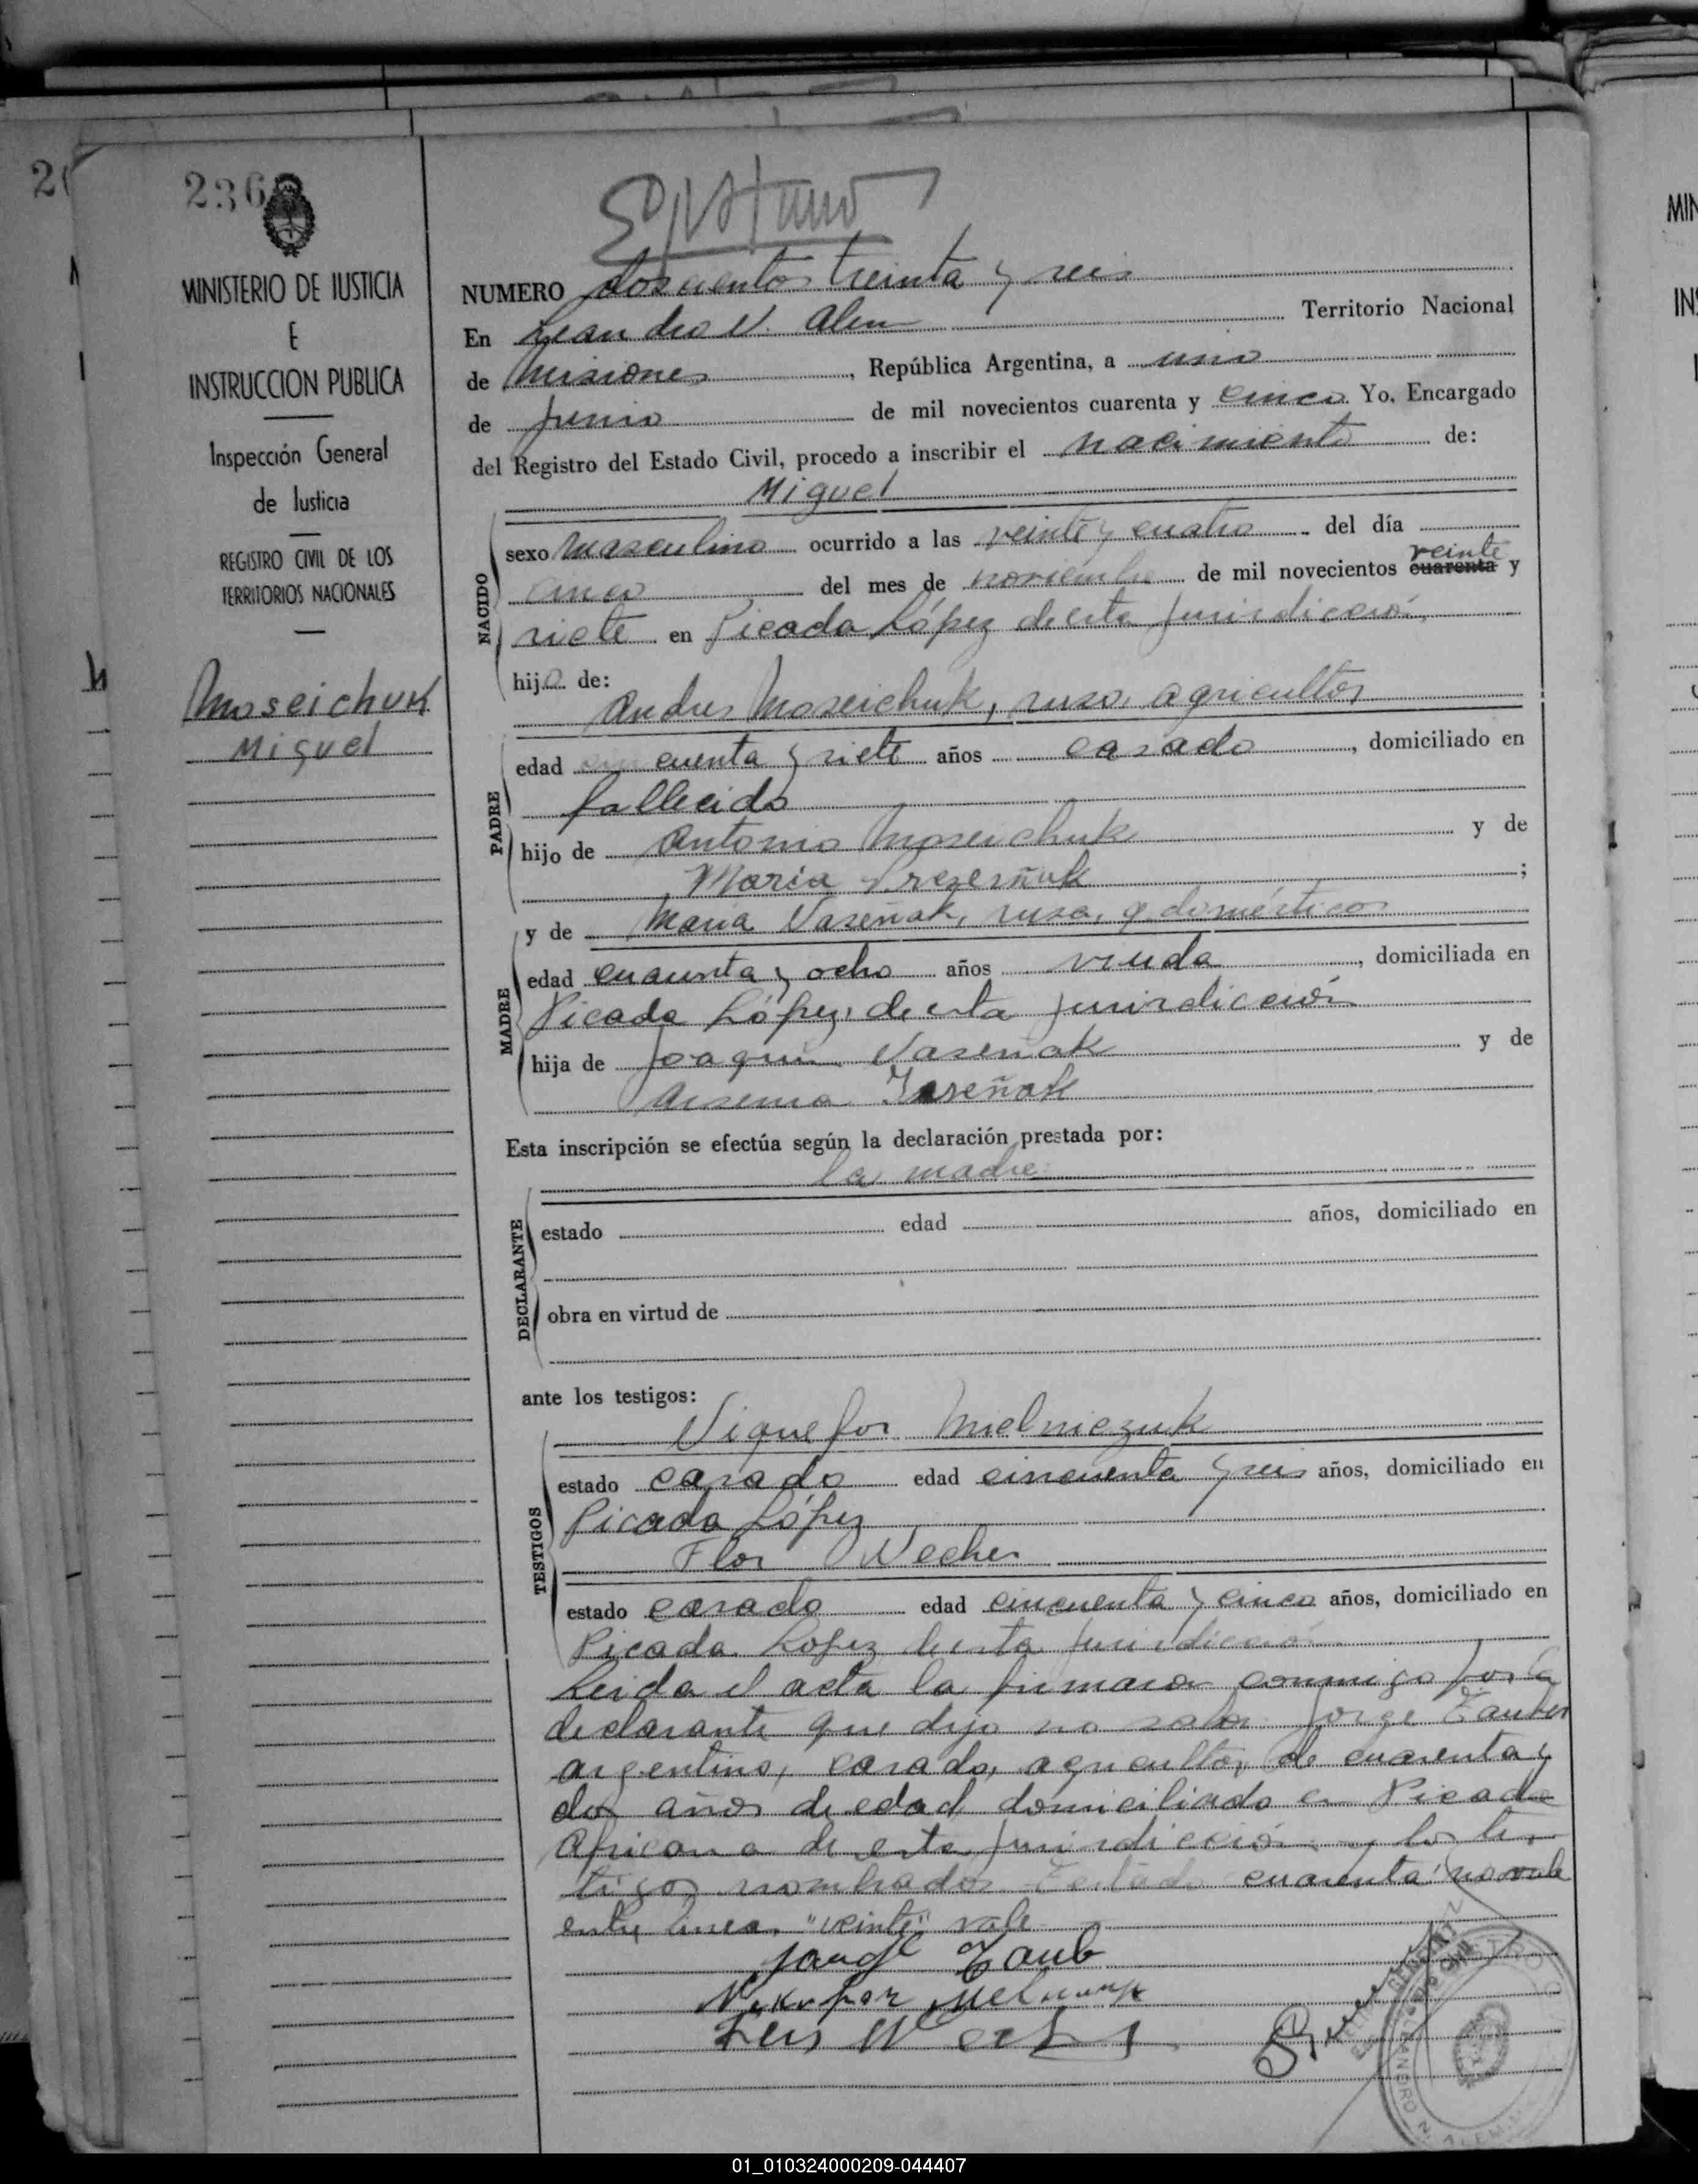 236
MINISTERIO DE JUSTICIA
E
INSTRUCCION PUBLICA
Inspección General
de Justicia
REGISTRO CIVIL DE LOS
TERRITORIOS NACIONALES
Moseichuk
Miguel
NUMERO doscientos treinta y seis
En Leandro N. Alem Territorio Nacional
de Misiones, República Argentina, a uno
de junio de mil novecientos cuarenta y cinco Yo, Encargado
del Registro del Estado Civil, procedo a inscribir el nacimiento de:
Miguel
NACIDO
sexo masculino ocurrido a las veinte y cuatro del día
cinco del mes de noviembre de mil novecientos cuarenta veinte y
siete en Picada López de esta jurisdicción
hijo de:
Andres Moseichuk, ruso, agricultor
PADRE
edad cincuenta y siete años casado, domiciliado en
fallecido
hijo de Antonio Moseichuk y de
Maria ;
MADRE
y de Maria Vaseñak, rusa, q. domésticos
edad cuarenta y ocho años viuda, domiciliada en
Picada López, de esta jurisdicción
hija de Joaquin Vaseñak y de
Esta inscripción se efectúa según la declaración prestada por:
la madre
DECLARANTE
estado edad años, domiciliado en
obra en virtud de
ante los testigos:
TESTIGOS
Niquefor Mielniczuk
estado casado edad cincuenta y seis años, domiciliado en
Picada López
Flor Wecher
estado casado edad cincuenta y cinco años, domiciliado en
Picada López de esta jurisdicción
Leida el acta la firmaron conmigo por la
declarante que dijo no saber Jorge
argentino, casado, agricultor, de cuarenta y
dos años de edad domiciliado en Picada
Africana de esta jurisdicción y los tes-
tigos nombrados Testado cuarenta: no vale
entre lineas "veinte" vale
01_010324000209-044407